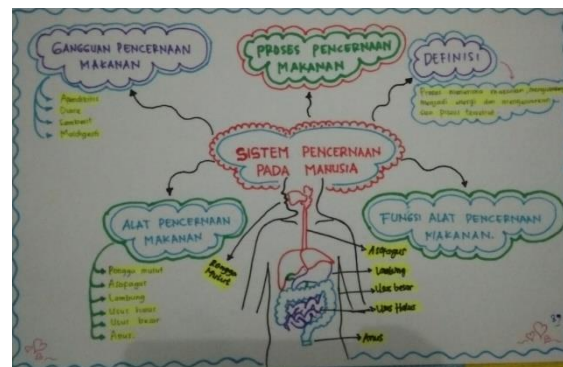 GANGGUAN PENCERNAAN
MAKANAN
Diare
PROSES PENCERNAAN
MAKANAN
DEFINISI
menjadi energi dan
dan proses tersebut
SISTEM PENCERNAAN
PADA MANUSIA
ALAT PENCERNAAN
MAKANAN
Rongga mulut
Asopagus
Lambung
Usus halus
Usus besar
Anus.
FUNGSI ALAT PENCERNAAN
MAKANAN.
Rongga
Mulut
Asopagus
Lambung
Usus besar
Usus Halus
Anus